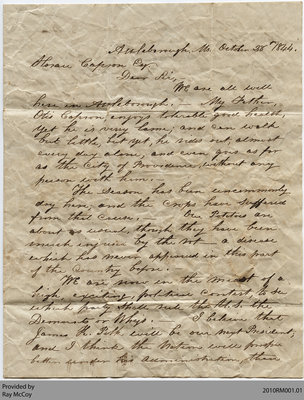 Attleborough, Ms, October 28th 1844.
Horace Capron Esq
Dear Sir,
We are all well
here in Attleborough. — My Father,
Otis Capron, enjoys tolerable good health,
yet he is very lame, and can walk
but little, but yet, he rides out almost
every day alone, and even goes as far
as the City of Providence, without any
person with him.
The Season has been uncommonly
dry here, and the Crops have suffered
from that cause. Our Potatoes are
about as usual, though they have been
much injured by the rot — a disease
which has never appeared in this part
of the Country before.
We are now in the midst of a
high, exciting, political contest, to see
which party shall rule the U.S. the
Democrats or Whigs. I believe that
James K. Polk will be our next President,
and I think the Nation will prosper
better under his administration, than
Provided by
Ray McCoy
2010RM001.01